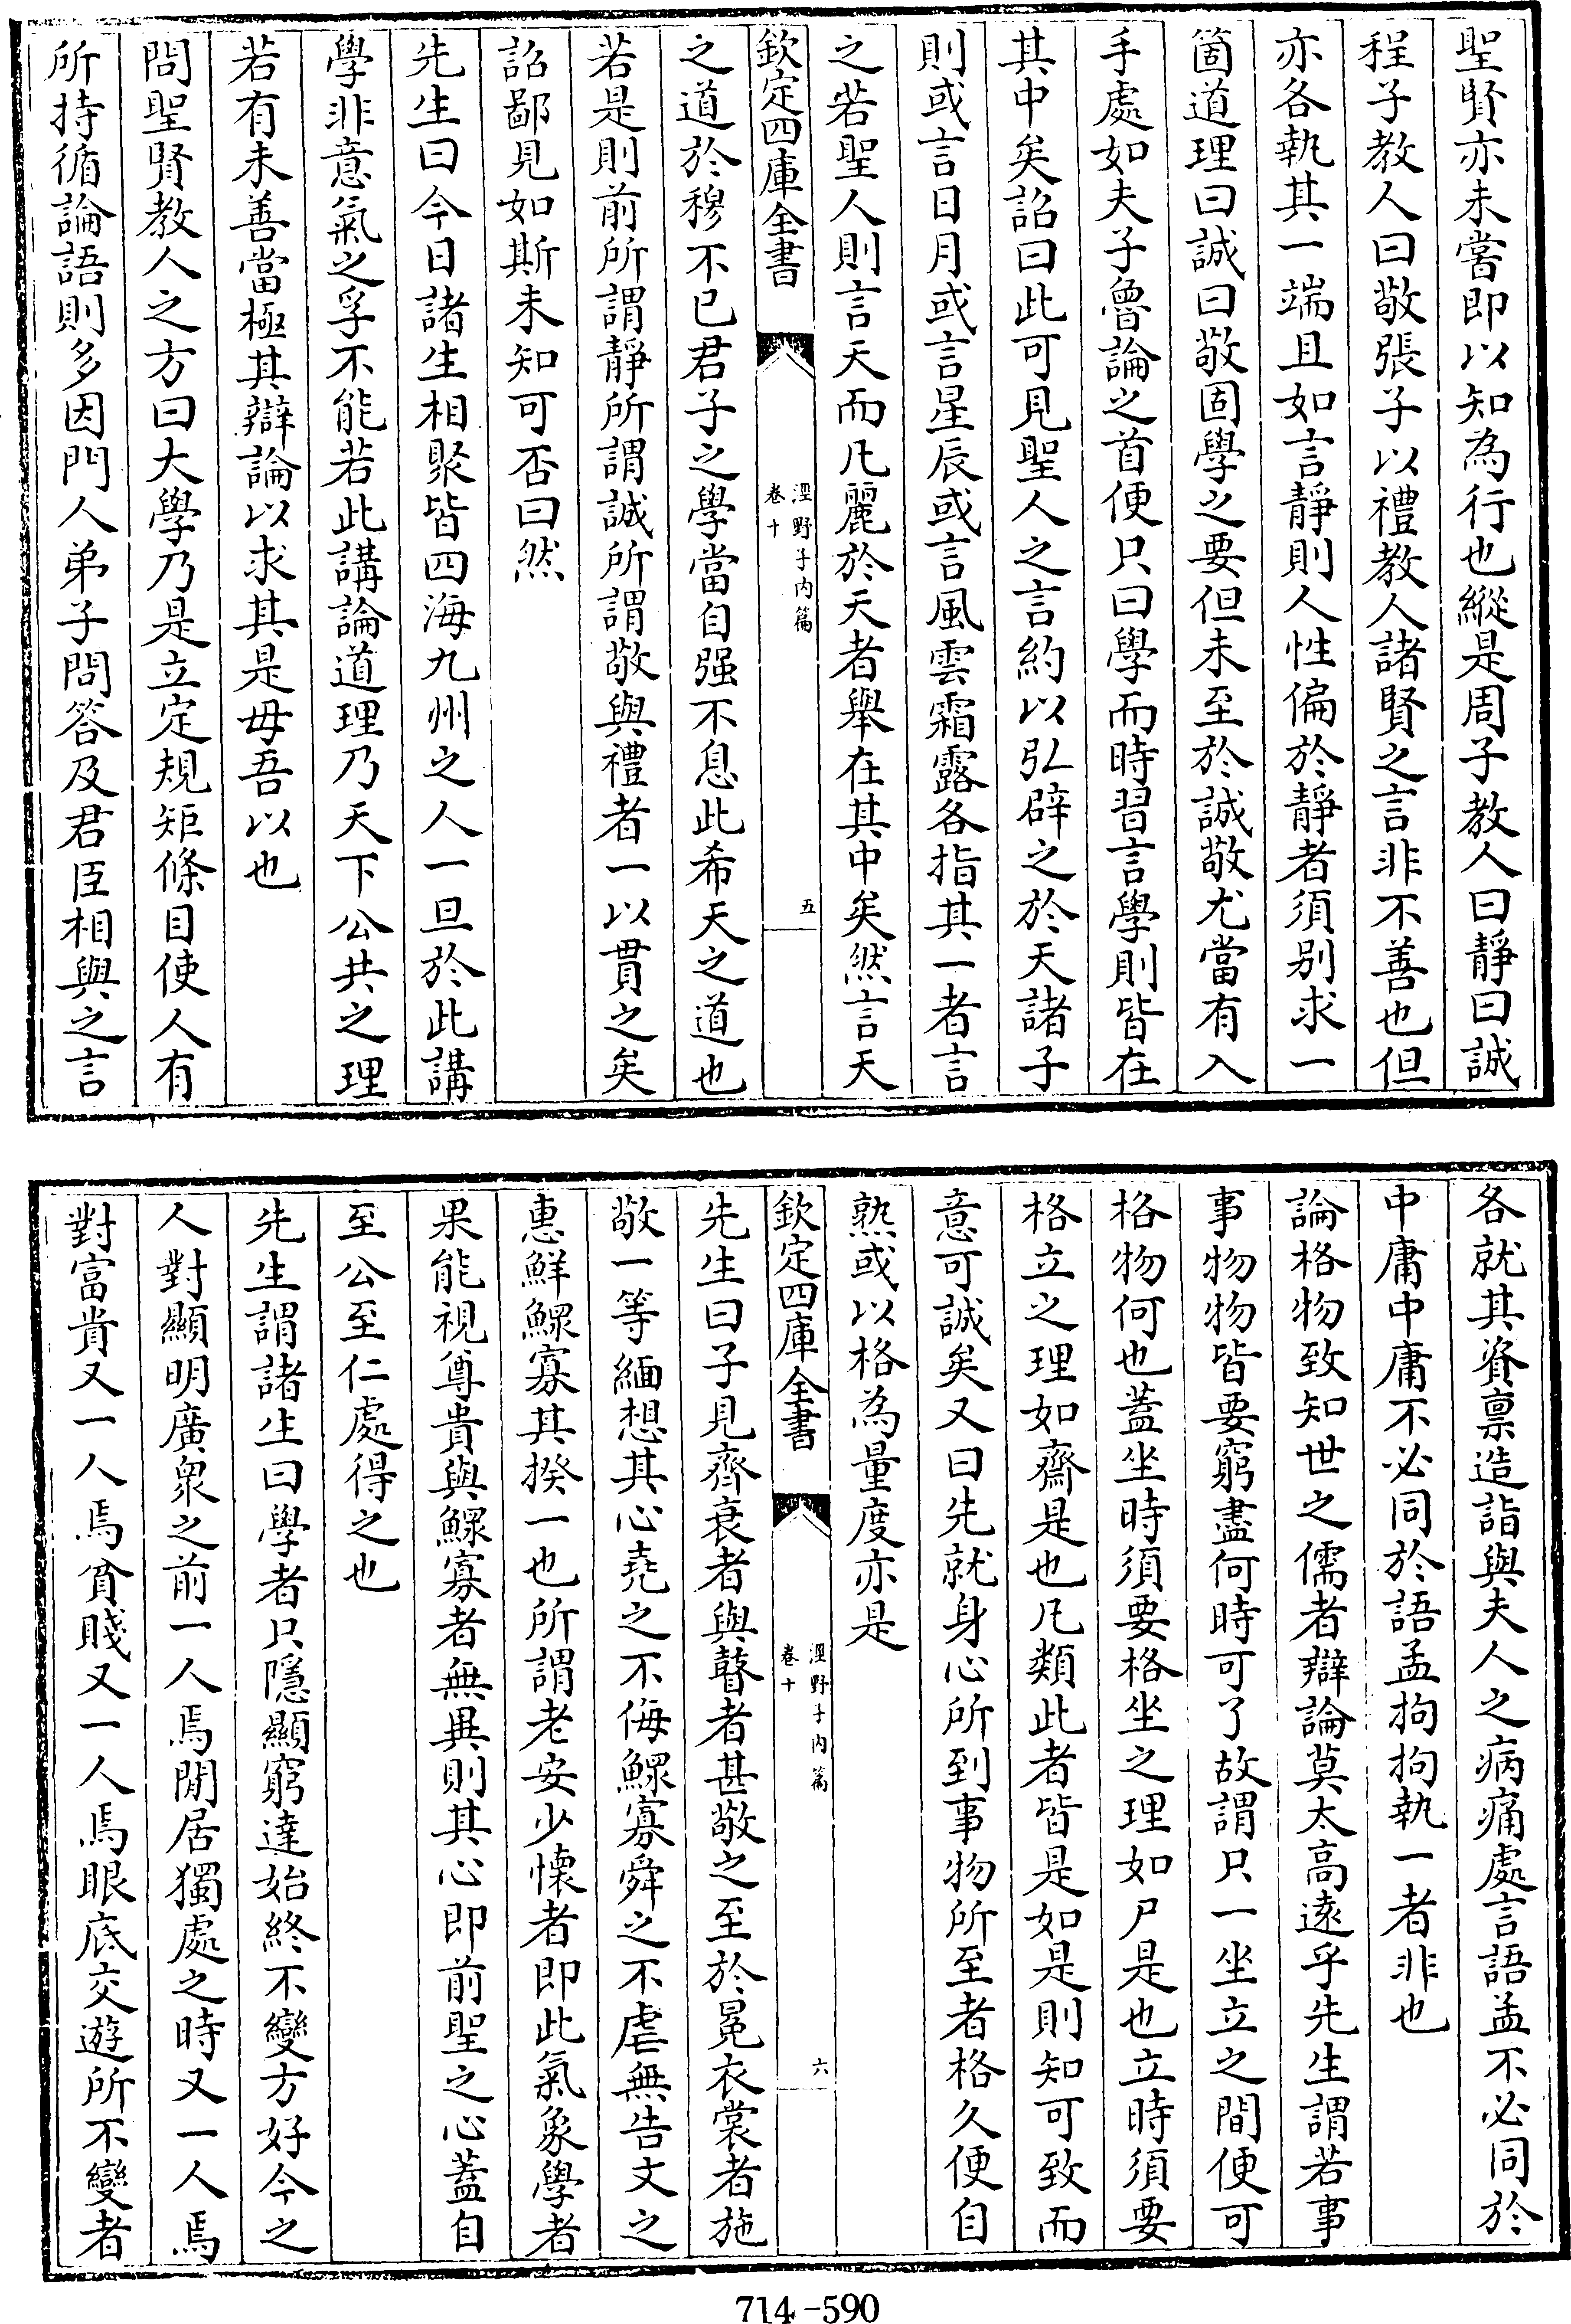 聖賢亦未嘗即以知為行也縱是周子教人曰靜曰誠
程子教人曰敬張子以禮教人諸賢之言非不善也但
亦各執其一端且如言靜則人性偏於靜者須別求一
箇道理曰誠曰敬固學之要但未至於誠敬尤當有入
手處如夫子魯論之首便只曰學而時習言學則皆在
其中矣詔曰此可見聖人之言約以弘辟之於天諸子
則或言日月或言星辰或言風雲霜露各指其一者言
之若聖人則言天而凡麗於天者舉在其中矣然言天
欽定四庫全書
涇野子内篇
卷十
五
之道於穆不已君子之學當自强不息此希天之道也
若是則前所謂靜所謂誠所謂敬與禮者一以貫之矣
詔鄙見如斯未知可否曰然
先生曰今日諸生相聚皆四海九州之人一旦於此講
學非意氣之孚不能若此講論道理乃天下公共之理
若有未善當極其辯論以求其是毋吾以也
問聖賢教人之方曰大學乃是立定規矩條目使人有
所持循論語則多因門人弟子問答及君臣相與之言
各就其資禀造詣與夫人之病痛處言語孟不必同於
中庸中庸不必同於語孟拘拘執一者非也
論格物致知世之儒者辯論莫太高遠乎先生謂若事
事物物皆要窮盡何時可了故謂只一坐立之間便可
格物何也蓋坐時須要格坐之理如尸是也立時須要
格立之理如齋是也凡類此者皆是如是則知可致而
意可誠矣又曰先就身心所到事物所至者格久便自
熟或以格為量度亦是
欽定四庫全書
涇野子内篇
卷十
六
先生曰子見齊衰者與瞽者甚敬之至於冕衣裳者施
敬一等緬想其心堯之不侮鰥寡舜之不虐無告文之
惠鮮鰥寡其揆一也所謂老安少懷者即此氣象學者
果能視尊貴與鰥寡者無異則其心即前聖之心蓋自
至公至仁處得之也
先生謂諸生曰學者只隱顯窮達始終不變方好今之
人對顯明廣衆之前一人焉閒居獨處之時又一人焉
對富貴又一人焉貧賤又一人焉眼底交遊所不變者
714-590